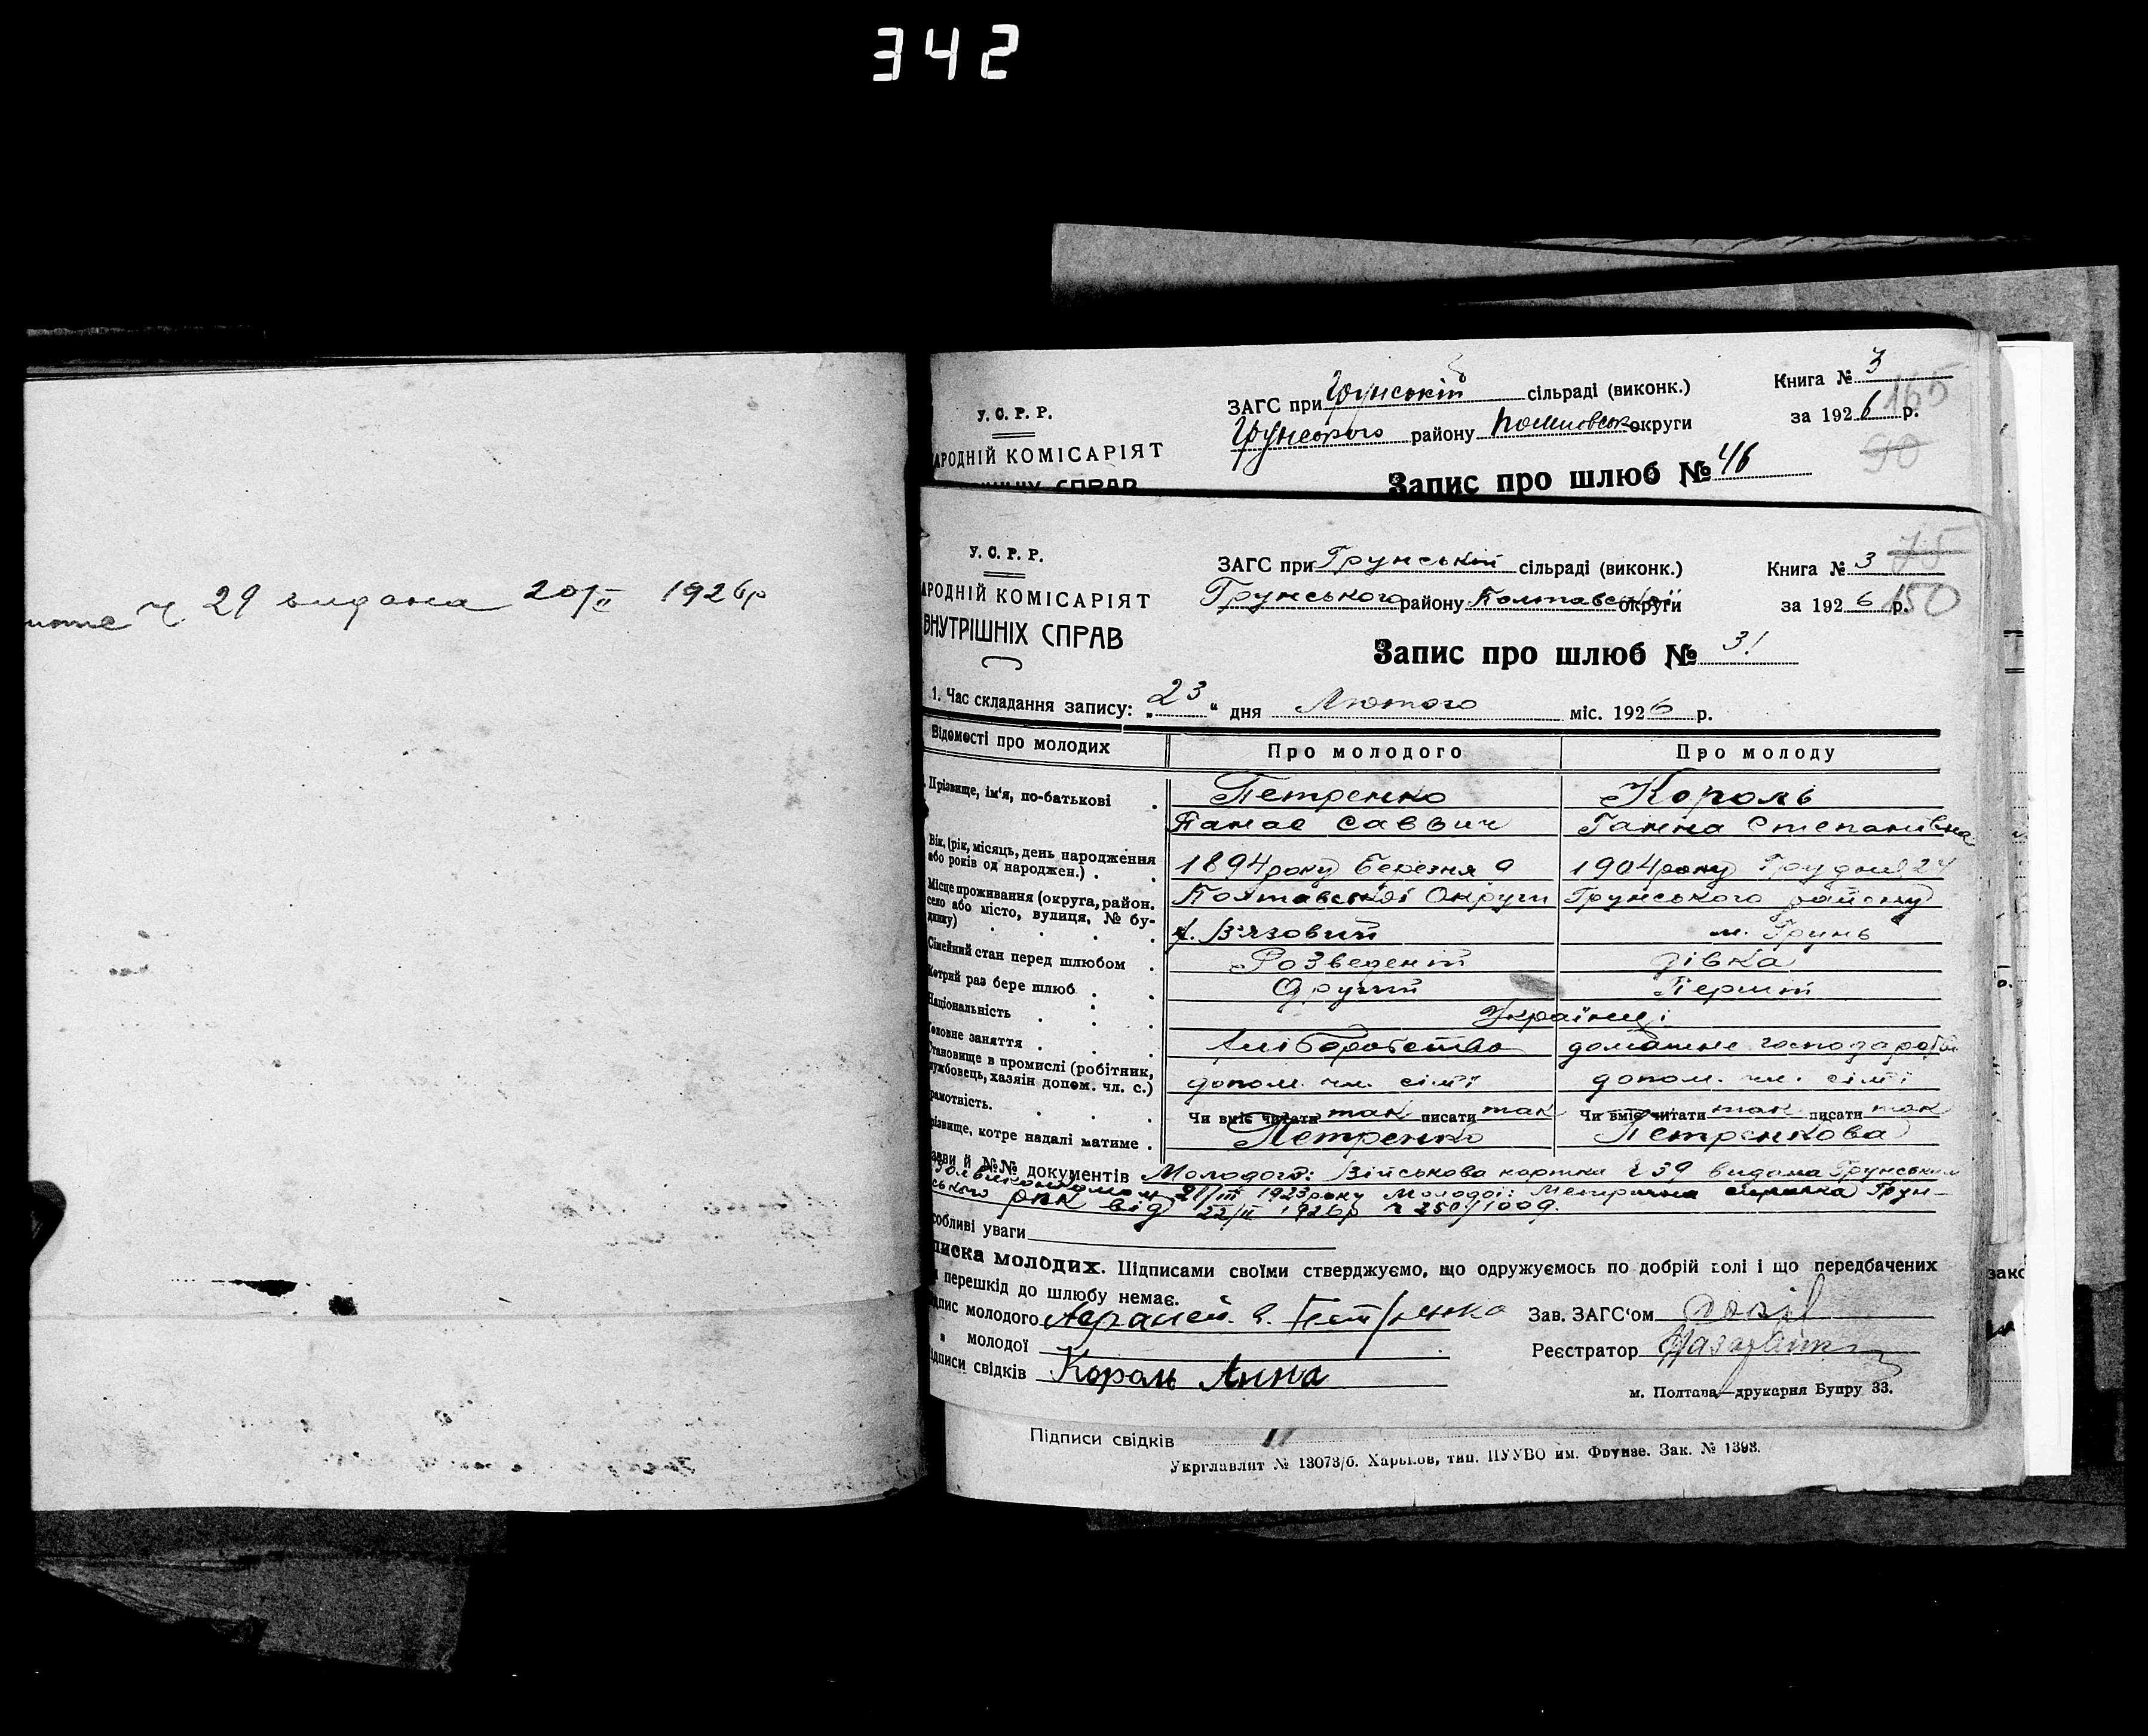 342
ч. 29 видана 20/II 1926р
У. С. Р. Р.
АРОДНІЙ КОМІСАРІЯТ
ЗАГС при Грунській сільраді (виконк.)
Грунського району округи
Книга № 3
за 1926 р.
165
90
Запис про шлюб № 46
У. С. Р. Р.
АРОДНІЙ КОМІСАРІЯТ
ВНУТРІШНІХ СПРАВ
ЗАГС при Грунській сільраді (виконк.)
Грунського району Полтавської округи
Книга № 3
за 1926 р.
75
150
Запис про шлюб № 31
1. Час складання запису: „23“ дня Лютого міс. 1926 р.
Відомості про молодих Про молодого Про молоду
Прізвище, ім'я, по-батькові Петренко Король
Панас Саввич Ганна Степанівна
Вік, (рік, місяць, день народження
або років од народжен.) 1894 року Березня 9 1904 року Грудня 24
Місце проживання (округа, район. Полтавської Округи Грунського району
село або місто, вулиця, № бу-
динку) х. В'язовий м. Грунь
Сімейний стан перед шлюбом Розведений дівка
Котрий раз бере шлюб Другий Перший
Національність Українці
Головне заняття хліборобство домашнє
Становище в промислі (робітник,
лужбовець, хазяін допом. чл. с.) допом. чл. сім'ї допом. чл. сім'ї
рамотність. Чи вміє читати так писати так Чи вміє читати так писати так
різвище, котре надалі матиме Петренко Петренкова
азви й №№ документів Молодого: Військова картка ч 39 видана Грунським
21/III 1923 року Молодої: Метрична справка Грун-
ського РВК від 22/II 1926р ч 250/1009.
собливі уваги
писка молодих. Підписами своїми стверджуємо, що одружуємось по добрій волі і що передбачених
перешкід до шлюбу немає.
пис молодого Петренко
„ молодої
ідписи свідків Король Анна
Зав. ЗАГС'ом
Реєстратор
м. Полтава—друкарня Бупру 33.
Підписи свідків
Укрглавлит № 13073/б. Харьков, тип. ПУУВО им. Фрунзе. Зак. № 1398.